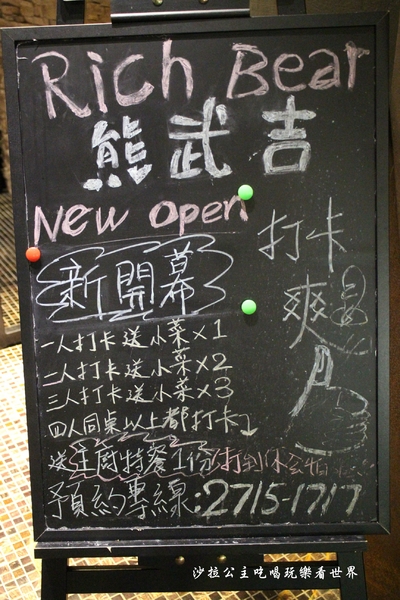 Rich Bear
熊武吉
New open
打卡
新開幕
爽
一人打卡送小菜×1
二人打卡送小菜×2
三人打卡送小菜×3
四人同桌以上都打卡
送主廚特餐1份 打到你會怕
預約專線:2715-1717
沙拉公主吃喝玩樂看世界